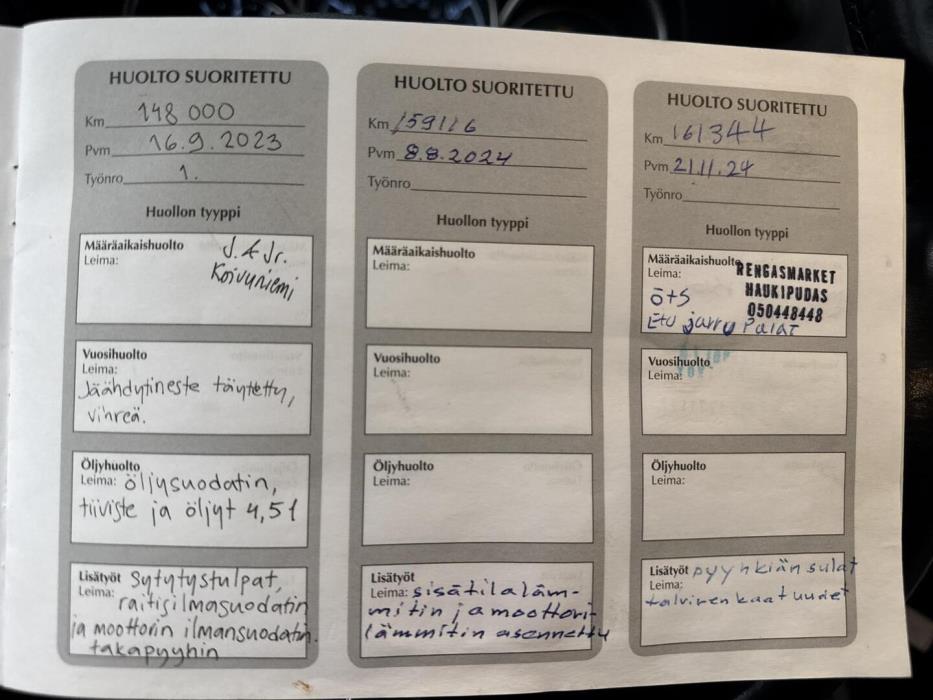 HUOLTO SUORITETTU
Km 148 000
Pvm 16.9.2023
Työnro 1.
Huollon tyyppi
Määräaikaishuolto
Leima:
J. & Jr.
Koivuniemi
Vuosihuolto
Leima:
Jäähdytineste täytetty,
vihreä.
Öljyhuolto
Leima: öljysuodatin,
tiiviste ja öljyt 4,5 l
Lisätyöt Sytytystulpat,
Leima: raitisilmasuodatin
ja moottorin ilmansuodatin.
takapyyhin
HUOLTO SUORITETTU
Km 159116
Pvm 8.8.2024
Työnro
Huollon tyyppi
Määräaikaishuolto
Leima:
Vuosihuolto
Leima:
Öljyhuolto
Leima:
Lisätyöt
Leima: sisätilaläm-
mitin ja moottori-
lämmitin asennettu
HUOLTO SUORITETTU
Km 161344
Pvm 21.11.24
Työnro
Huollon tyyppi
Määräaikaishuolto
Leima:
RENGASMARKET
HAUKIPUDAS
050448448
ö+s
Etu jarru palat
Vuosihuolto
Leima:
Öljyhuolto
Leima:
Lisätyöt pyyhkiän sulat
Leima:
talvirenkaat uudet